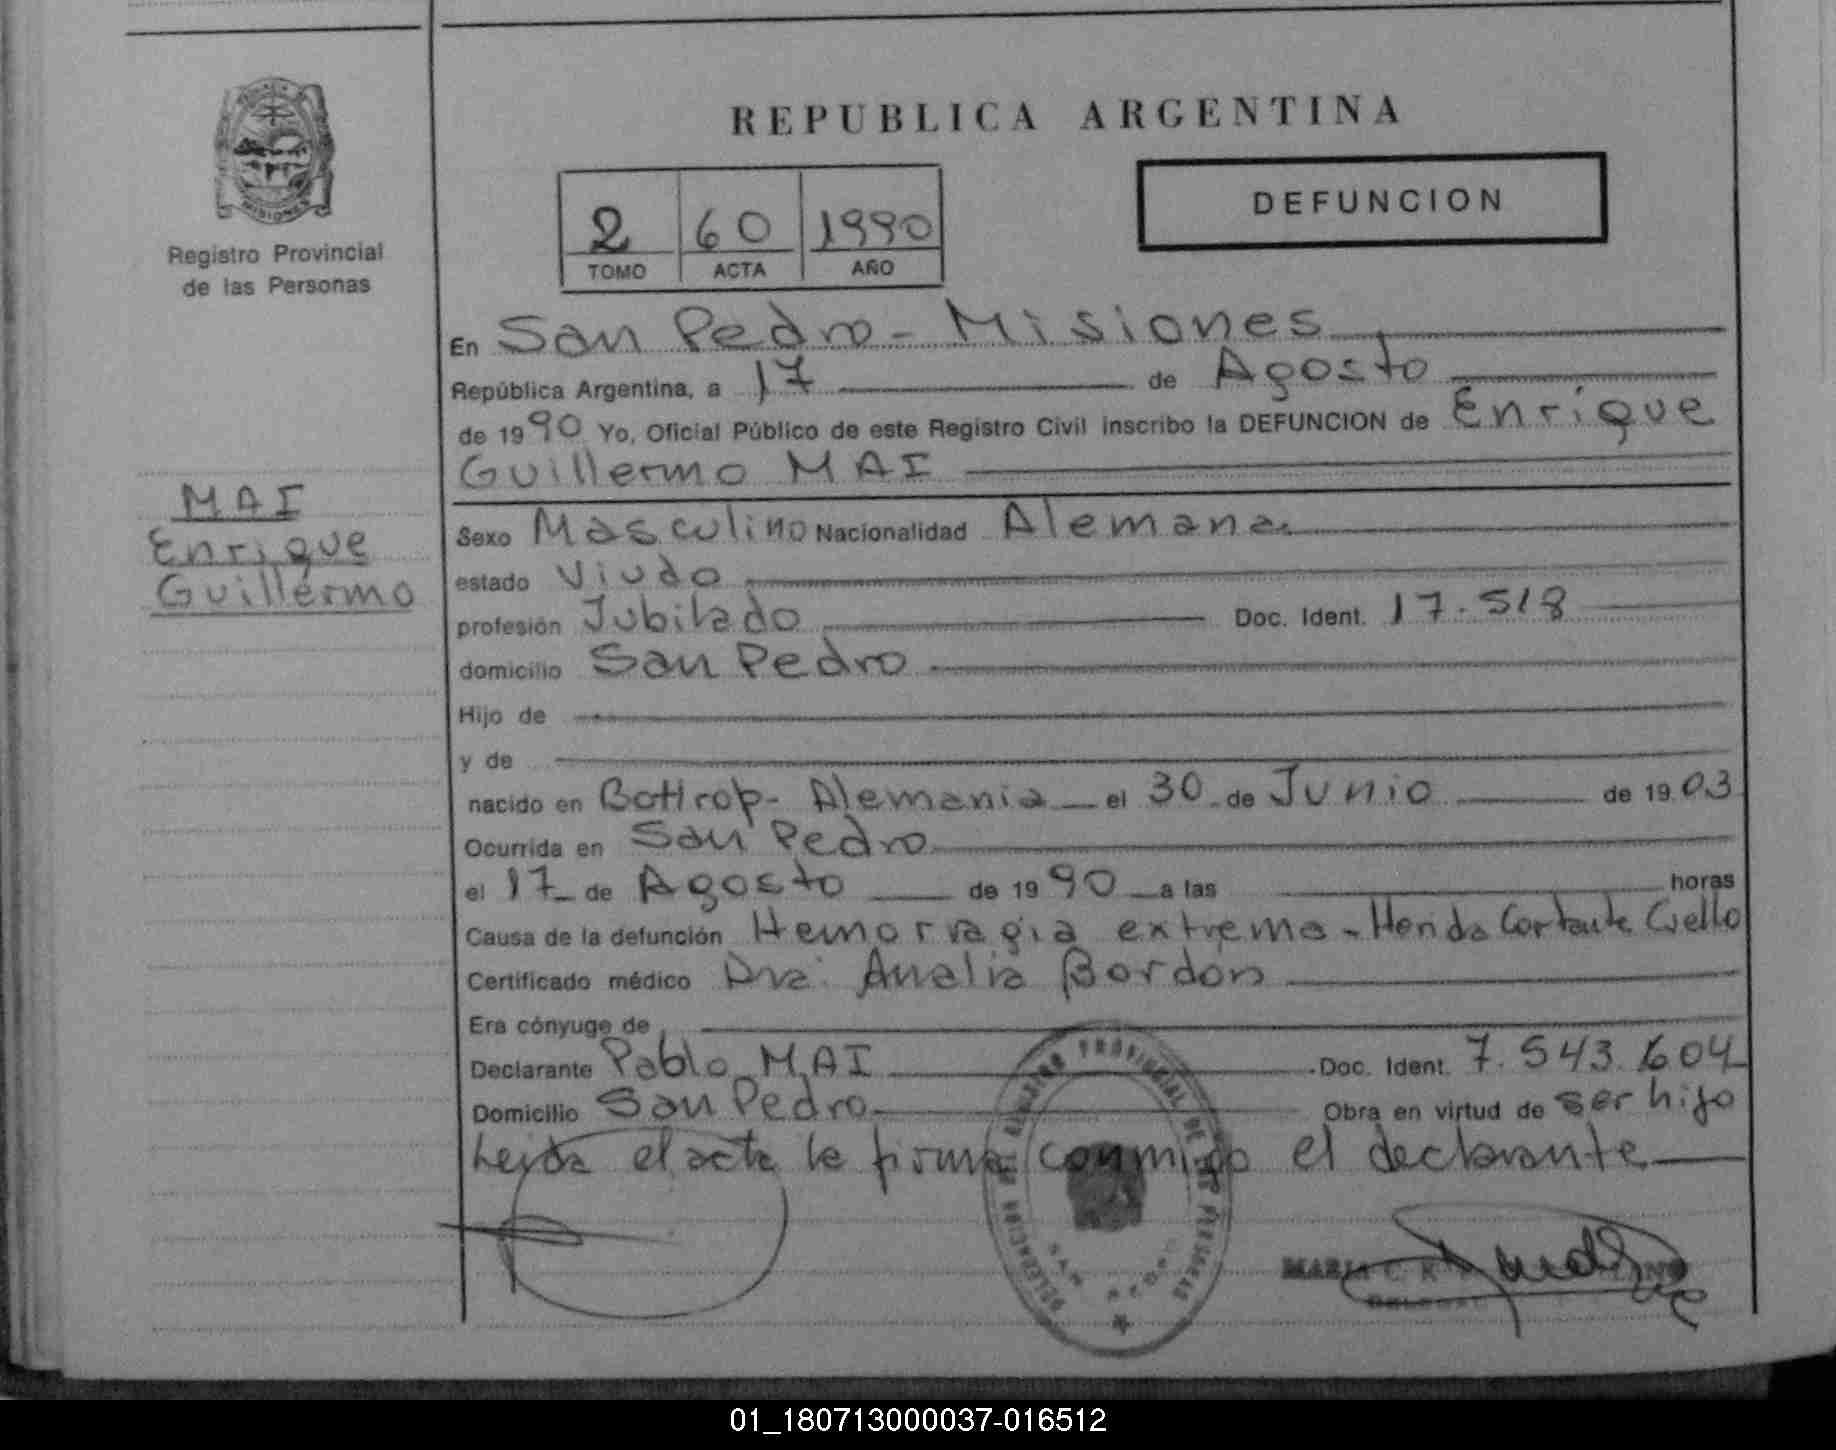 REPUBLICA ARGENTINA
MISIONES
Registro Provincial
de las Personas
2 60 1990
TOMO ACTA AÑO
DEFUNCION
En San Pedro - Misiones
República Argentina, a 17 de Agosto
de 1990 Yo, Oficial Público de este Registro Civil inscribo la DEFUNCION de Enrique
Guillermo MAI
MAI
Enrique
Guillermo
Sexo Masculino Nacionalidad Alemana
estado Viudo
profesión Jubilado Doc. Ident. 17.518
domicilio San Pedro
Hijo de
y de
nacido en Bottrop - Alemania el 30 de Junio de 1903
Ocurrida en San Pedro
el 17 de Agosto de 1990 a las horas
Causa de la defunción Hemorragia extrema - Herida Cortante Cuello
Certificado médico Dra. Analia Bordon
Era cónyuge de
Declarante Pablo MAI Doc. Ident. 7.543.604
Domicilio San Pedro Obra en virtud de ser hijo
Leida el acta la firma conmigo el declarante
PROVINCIAL DE LAS PERSONAS
SAN PEDRO
MARIA C. R.
01_180713000037-016512